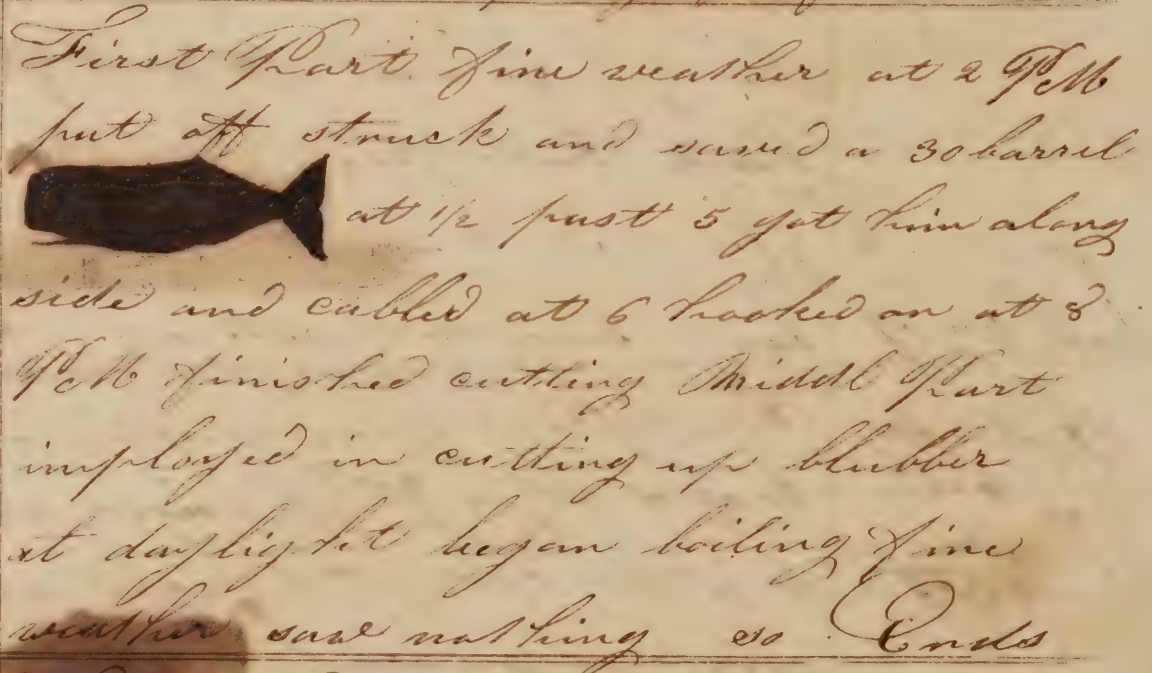 First Part fine weather at 2 PM
put off struck and saved a 30 barrel
at 1/2 past 5 got him along
side and cabled at 6 hooked on at 8
PM finished cutting Middl Part
imployed in cutting up blubber
at daylight began boiling fine
weather saw nothing so Ends